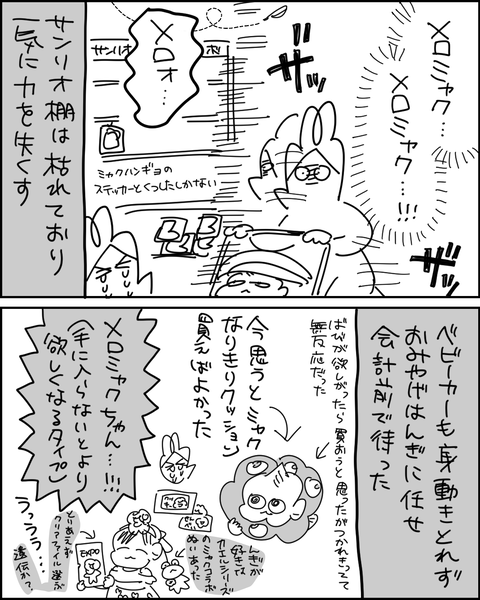 メロミャク…
メロミャク…!!!
ザッ
ザザッ
メロォ…
サンリオ
ミャクハンギョの
ステッカーとくつしたしかない
サンリオ棚は枯れており
一気に力を失くす
ベビーカーも身動きとれず
おみやげはんぎに任せ
会計前で待った
ばびが欲しがったら買おうと思ったがつかれきってて
無反応だった
今思うとミャク
なりきりクッション
買えばよかった
メロミャクちゃん…!!!
(手に入らないとより
欲しくなるタイプ)
うっうう…
はんぎが
好きな
カエルシリーズ
のミャクコラボ
ぬいあった
EXPO
とりあえず
クリアファイル選ぶ
遺伝か?